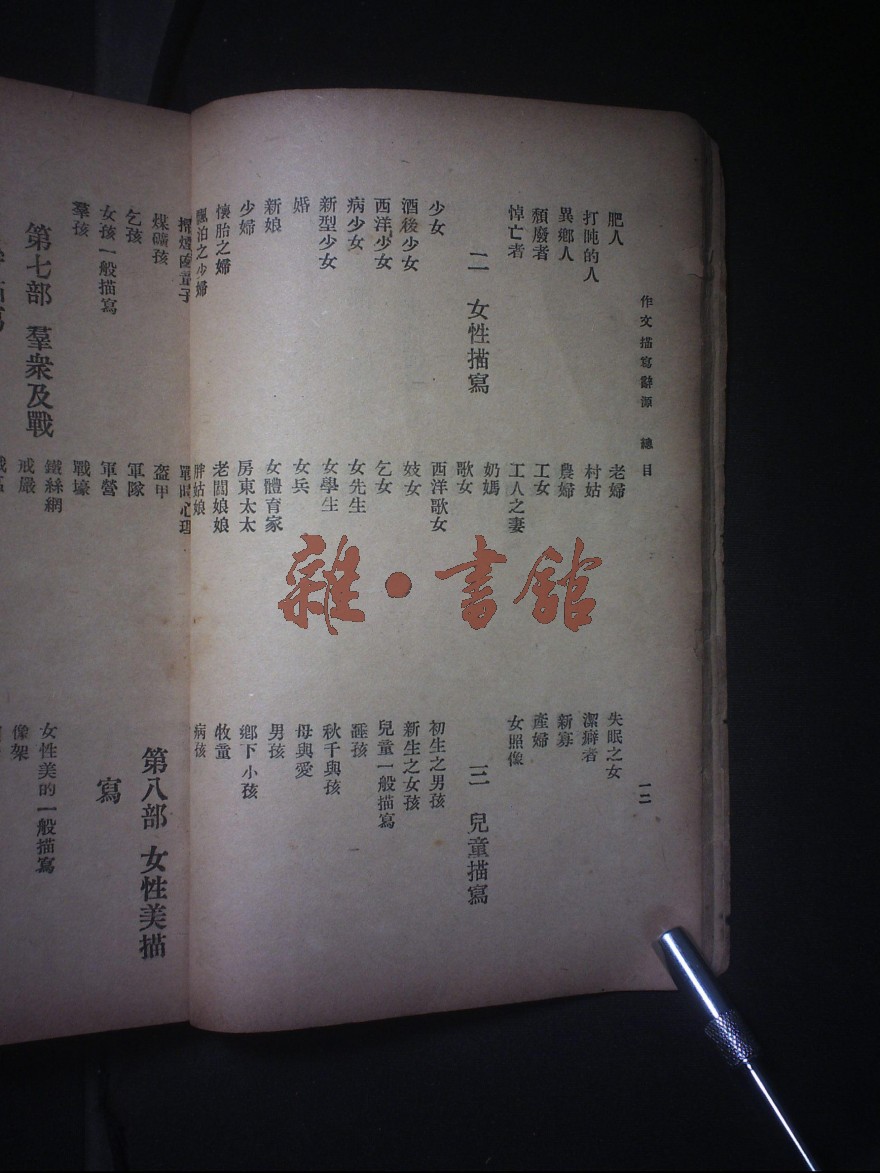 作文描寫辭源 總目
一二
肥人
打盹的人
異鄉人
頹廢者
悼亡者
二 女性描寫
少女
酒後少女
西洋少女
病少女
新型少女
婚
新娘
少婦
懷胎之婦
飄泊之少婦
老婦
村姑
農婦
工女
工人之妻
奶媽
歌女
西洋歌女
妓女
乞女
女先生
女學生
女兵
女體育家
房東太太
老闆娘娘
胖姑娘
失眠之女
潔癖者
新寡
產婦
女照像
三 兒童描寫
初生之男孩
新生之女孩
兒童一般描寫
睡孩
秋千與孩
母與愛
男孩
鄉下小孩
牧童
病孩
煤礦孩
乞孩
女孩一般描寫
羣孩
第七部 羣衆及戰
軍眼心理
盔甲
軍隊
軍營
戰壕
鐵絲網
戒嚴
第八部 女性美描
寫
女性美的一般描寫
像架
雜·書館